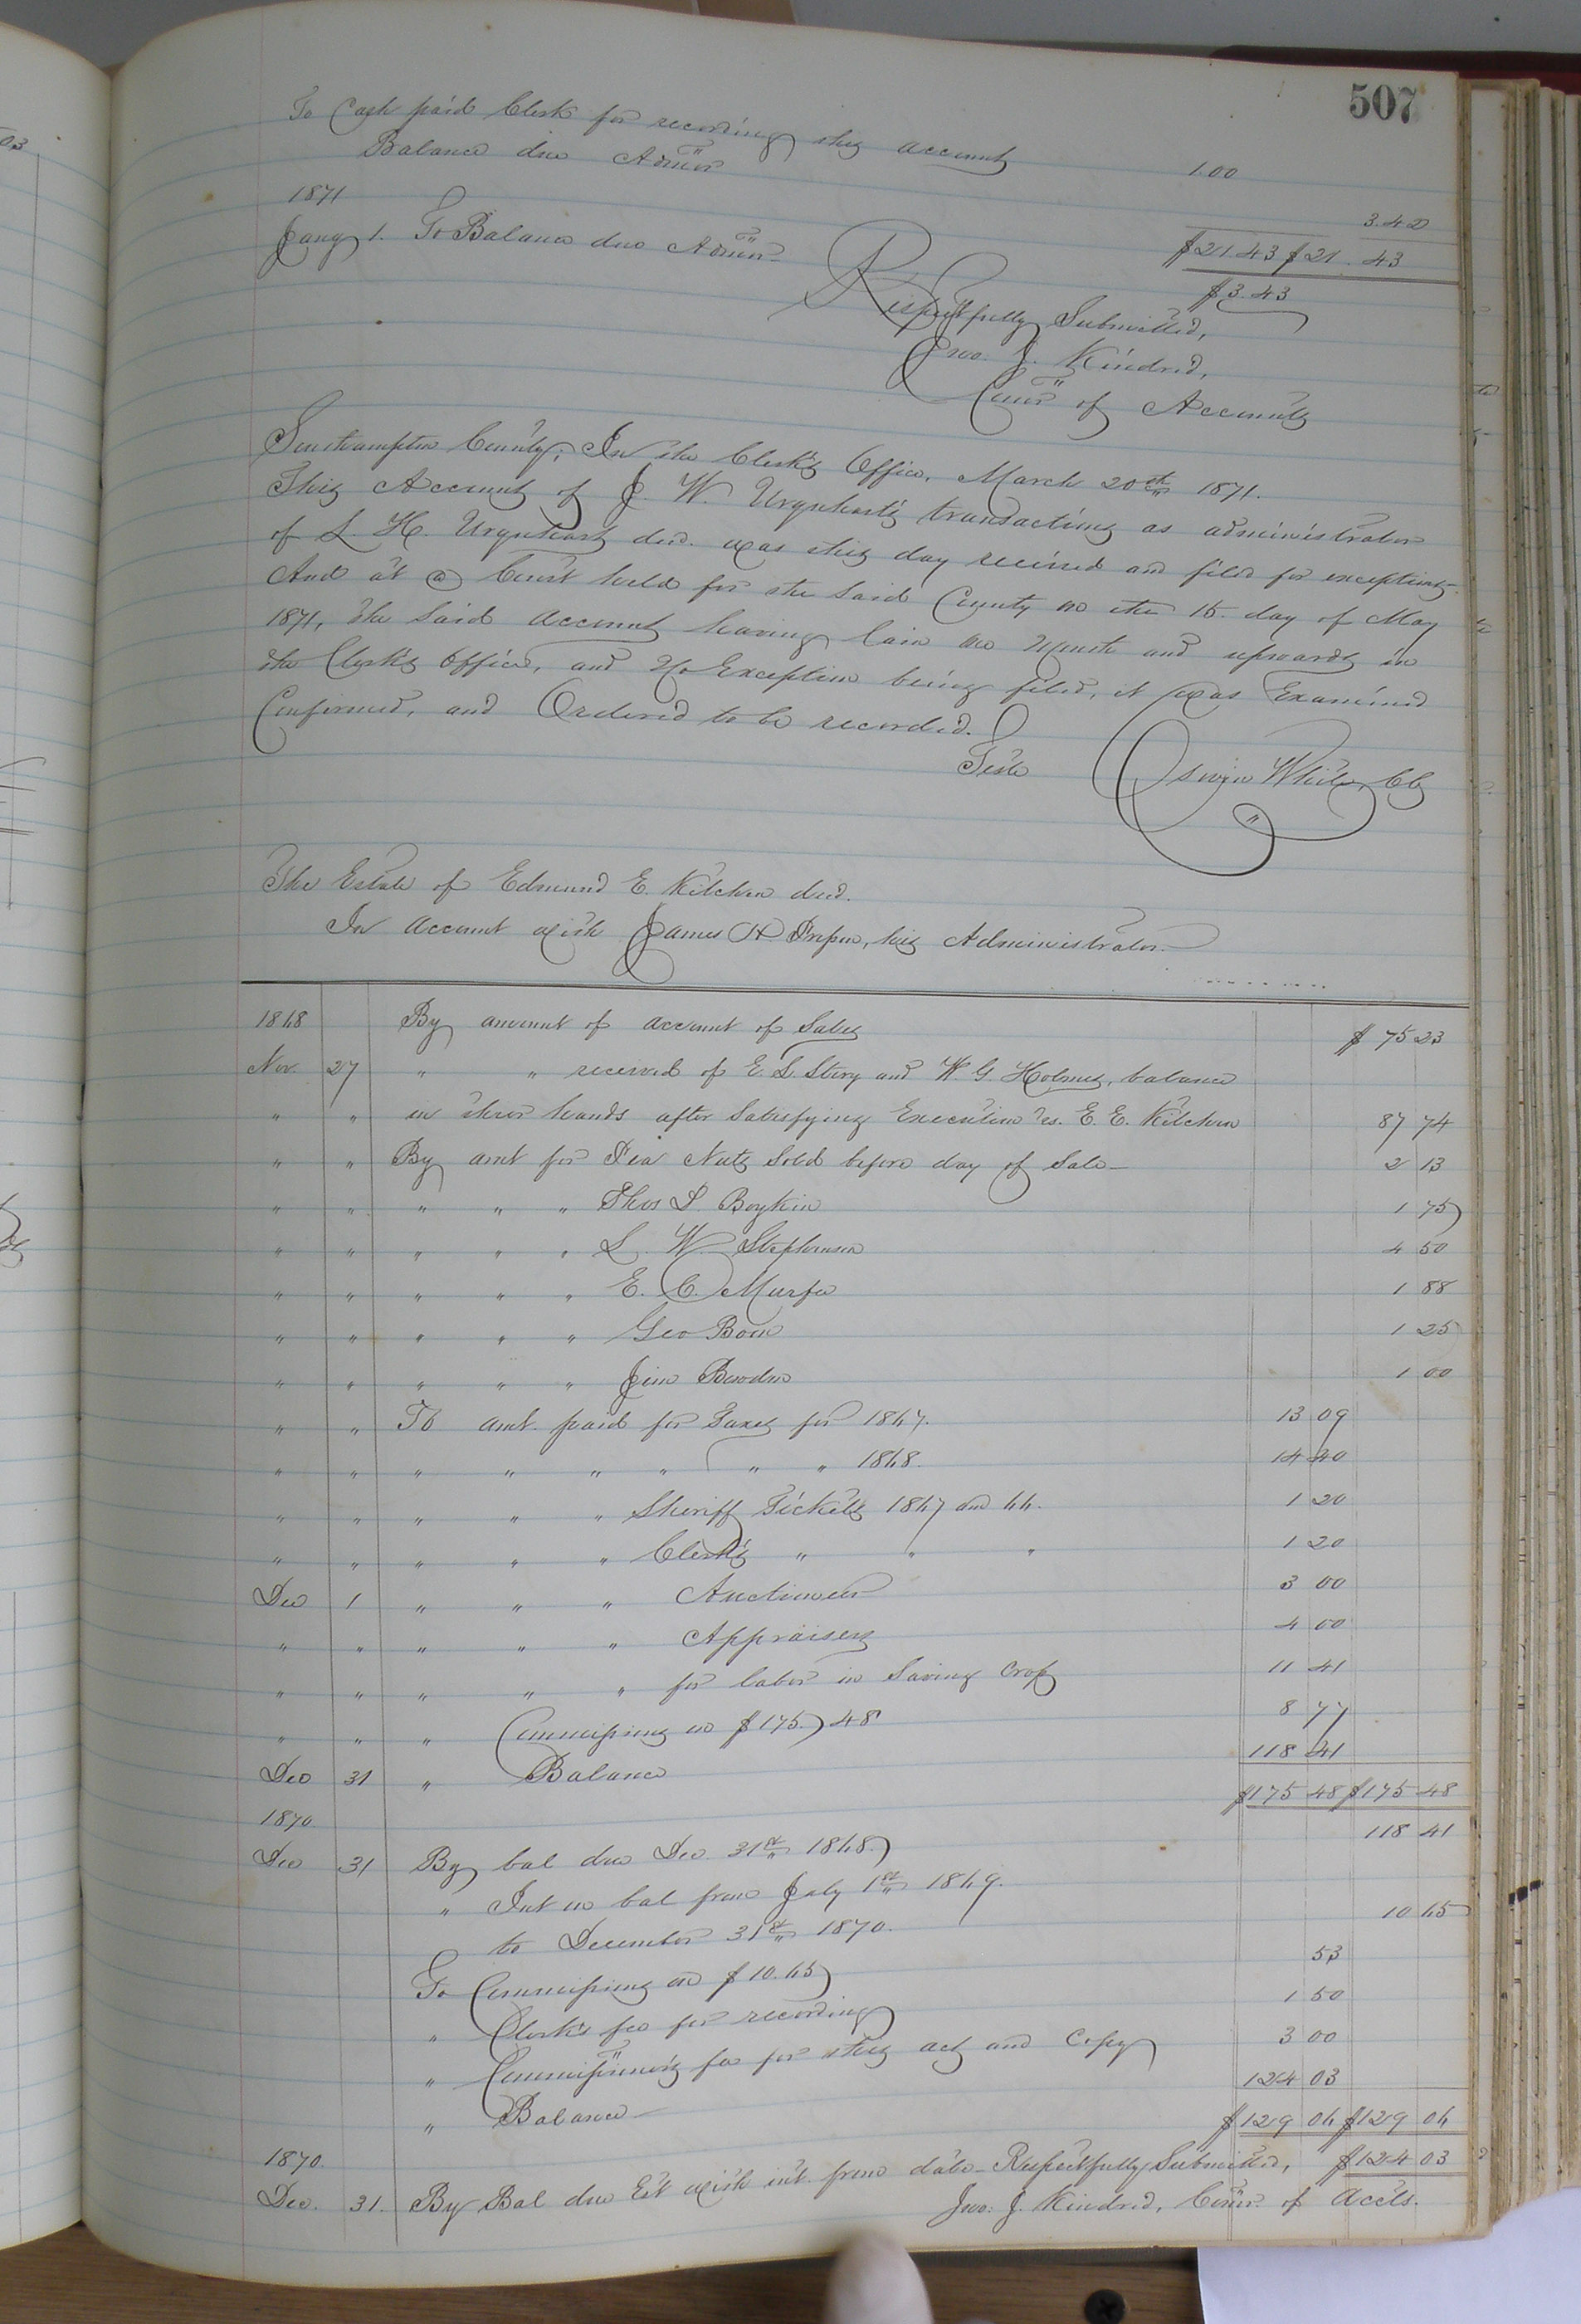 507
To Cash paid Clerk for recording this account 1.00
Balance due Admor 3.42
1871
Jany 1. To Balance due Admor $21.43 $21.43
$3.43
Respectfully Submitted,
Jno. J. Kindred,
Comr of Accounts
Southampton County; In the Clerk's Office, March 20th 1871.
This Account of J. W. Urquhart's transactions as administrator
of L. H. Urquhart decd. was this day received and filed for exceptions-
And at a Court held for the said County on the 15. day of May
1871, the said account having lain one Month and upwards in
the Clerk's office, and No Exception being filed, it was Examined
Confirmed, and Ordered to be recorded.
Teste Oswin White, CC
The Estate of Edmund E. Kitchen decd.
In account with James H, his Administrator.
1868 By amount of account of Sales $ 75 23
Nov. 27 " " received of E. S. Story and W. G. Holmes, balance
" " in their hands after satisfying Execution vs. E. E. Kitchen 87 74
" " By amt for Pea Nuts sold before day of Sale- 2 13
" " " " " Thos Boykin 1 75
" " " " " L. W. Stephenson 4 50
" " " " " E. C. Murfee 1 88
" " " " " Geo 1 25
" " " " " Jim 1 00
" " To amt. paid for Taxes for 1867. 13 09
" " " " " " " " 1868. 14 40
" " " " " Sheriff Tickets 1867 and 66. 1 20
" " " " " Clerk's " " " 1 20
Dec 1 " " " Auctioneer 3 00
" " " " " Appraisers 4 00
" " " " " for labor in Saving Crop 11 41
" " " Commissions on $175.48 8 77
Dec 31 " Balance 118 41
$175 48 $175 48
1870
Dec 31 By bal due Dec. 31st 1868. 118 41
" Int on bal from July 1st 1869.
to December 31st 1870. 10 65
To Commissions on $10.65 53
" Clerk's fee for recording 1 50
" Commissioner's fee for this act and Copy 3 00
" Balance- 124 03
$129 06 $129 06
1870.
Dec. 31. By Bal due Est with int. from date- Respectfully Submitted, $124 03
Jno. J. Kindred, Comr. of Accts.